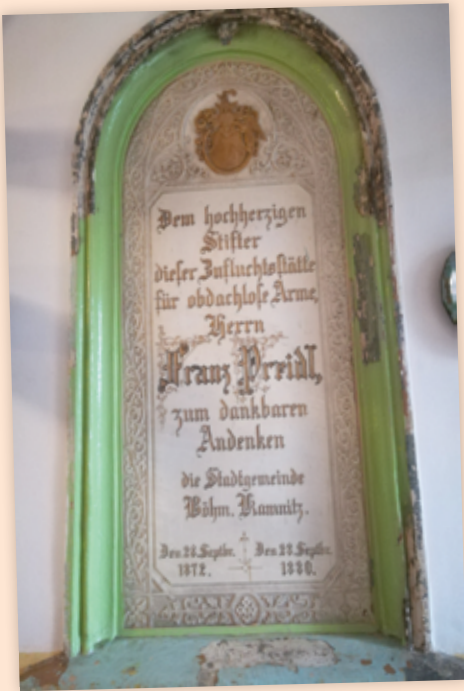 Dem hochherzigen
Stifter
dieser Zufluchtsstätte
für obdachlose Arme,
Herrn
Franz Preidl,
zum dankbaren
Andenken
die Stadtgemeinde
Böhm. Kamnitz.
Den 28. Septbr. Den 28. Septbr.
1872. 1880.